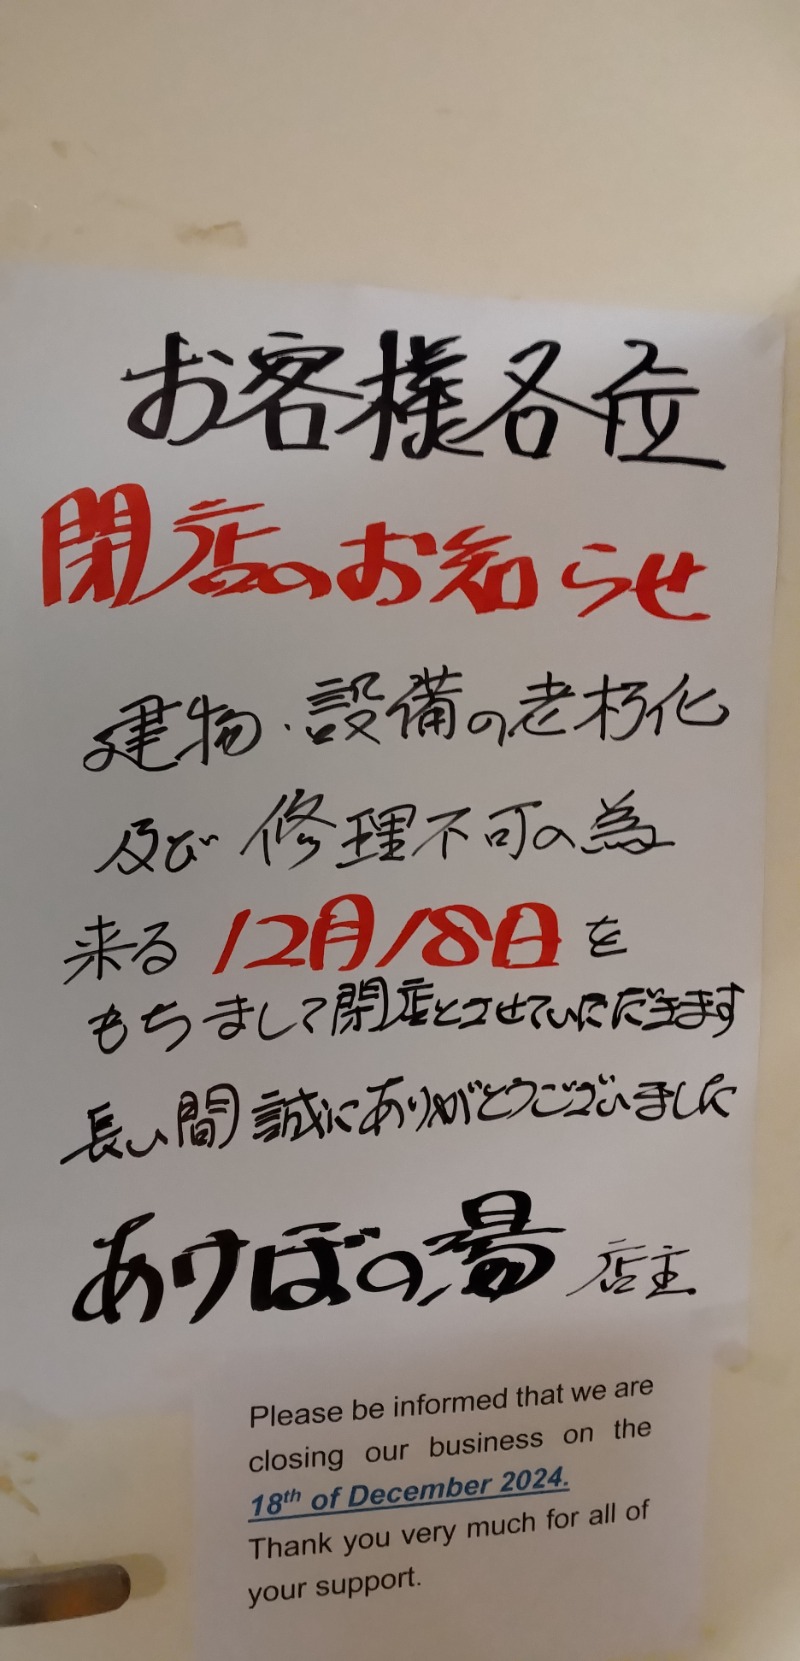 お客様各位
閉店のお知らせ
建物・設備の老朽化
及び修理不可の為
来る12月18日を
もちまして閉店とさせていただきます
長い間誠にありがとうございました
あけぼの湯 店主
Please be informed that we are
closing our business on the
18th of December 2024.
Thank you very much for all of
your support.